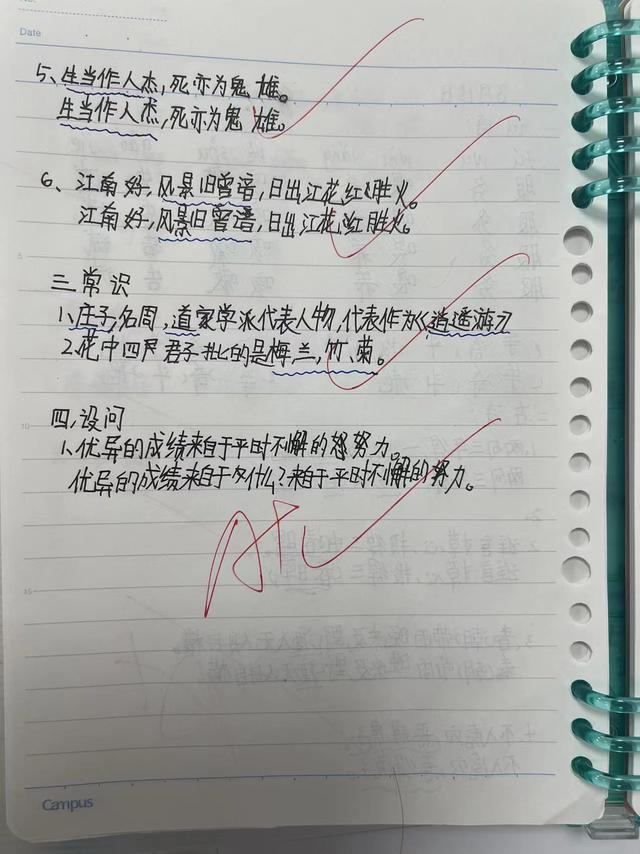 No.
Date
5、生当作人杰,死亦为鬼雄。
生当作人杰,死亦为鬼雄。
6、江南好,风景旧曾谙,日出江花红胜火。
江南好,风景旧曾谙,日出江花红胜火。
三、常识
1、庄子,名周,道家学派代表人物,代表作为《逍遥游》
2、花中四 君子 的是梅,兰,竹、菊。
四、设问
1、优异的成绩来自于平时不懈的努力。
优异的成绩来自于为什么?来自于平时不懈的努力。
A+
5
10
15
Campus